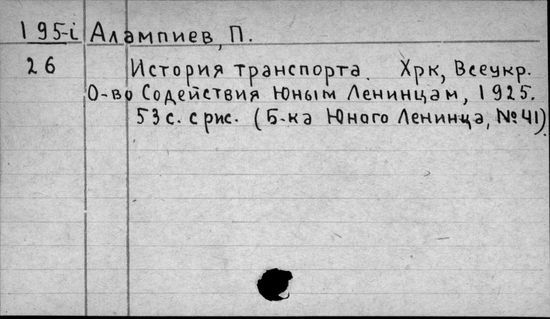 195-i Алампиев, П.
26 История транспорта. Хрк, Всеукр.
О-во Содействия Юным Ленинцам, 1925.
53 с. с рис. (Б-ка Юного Ленинца, №41)